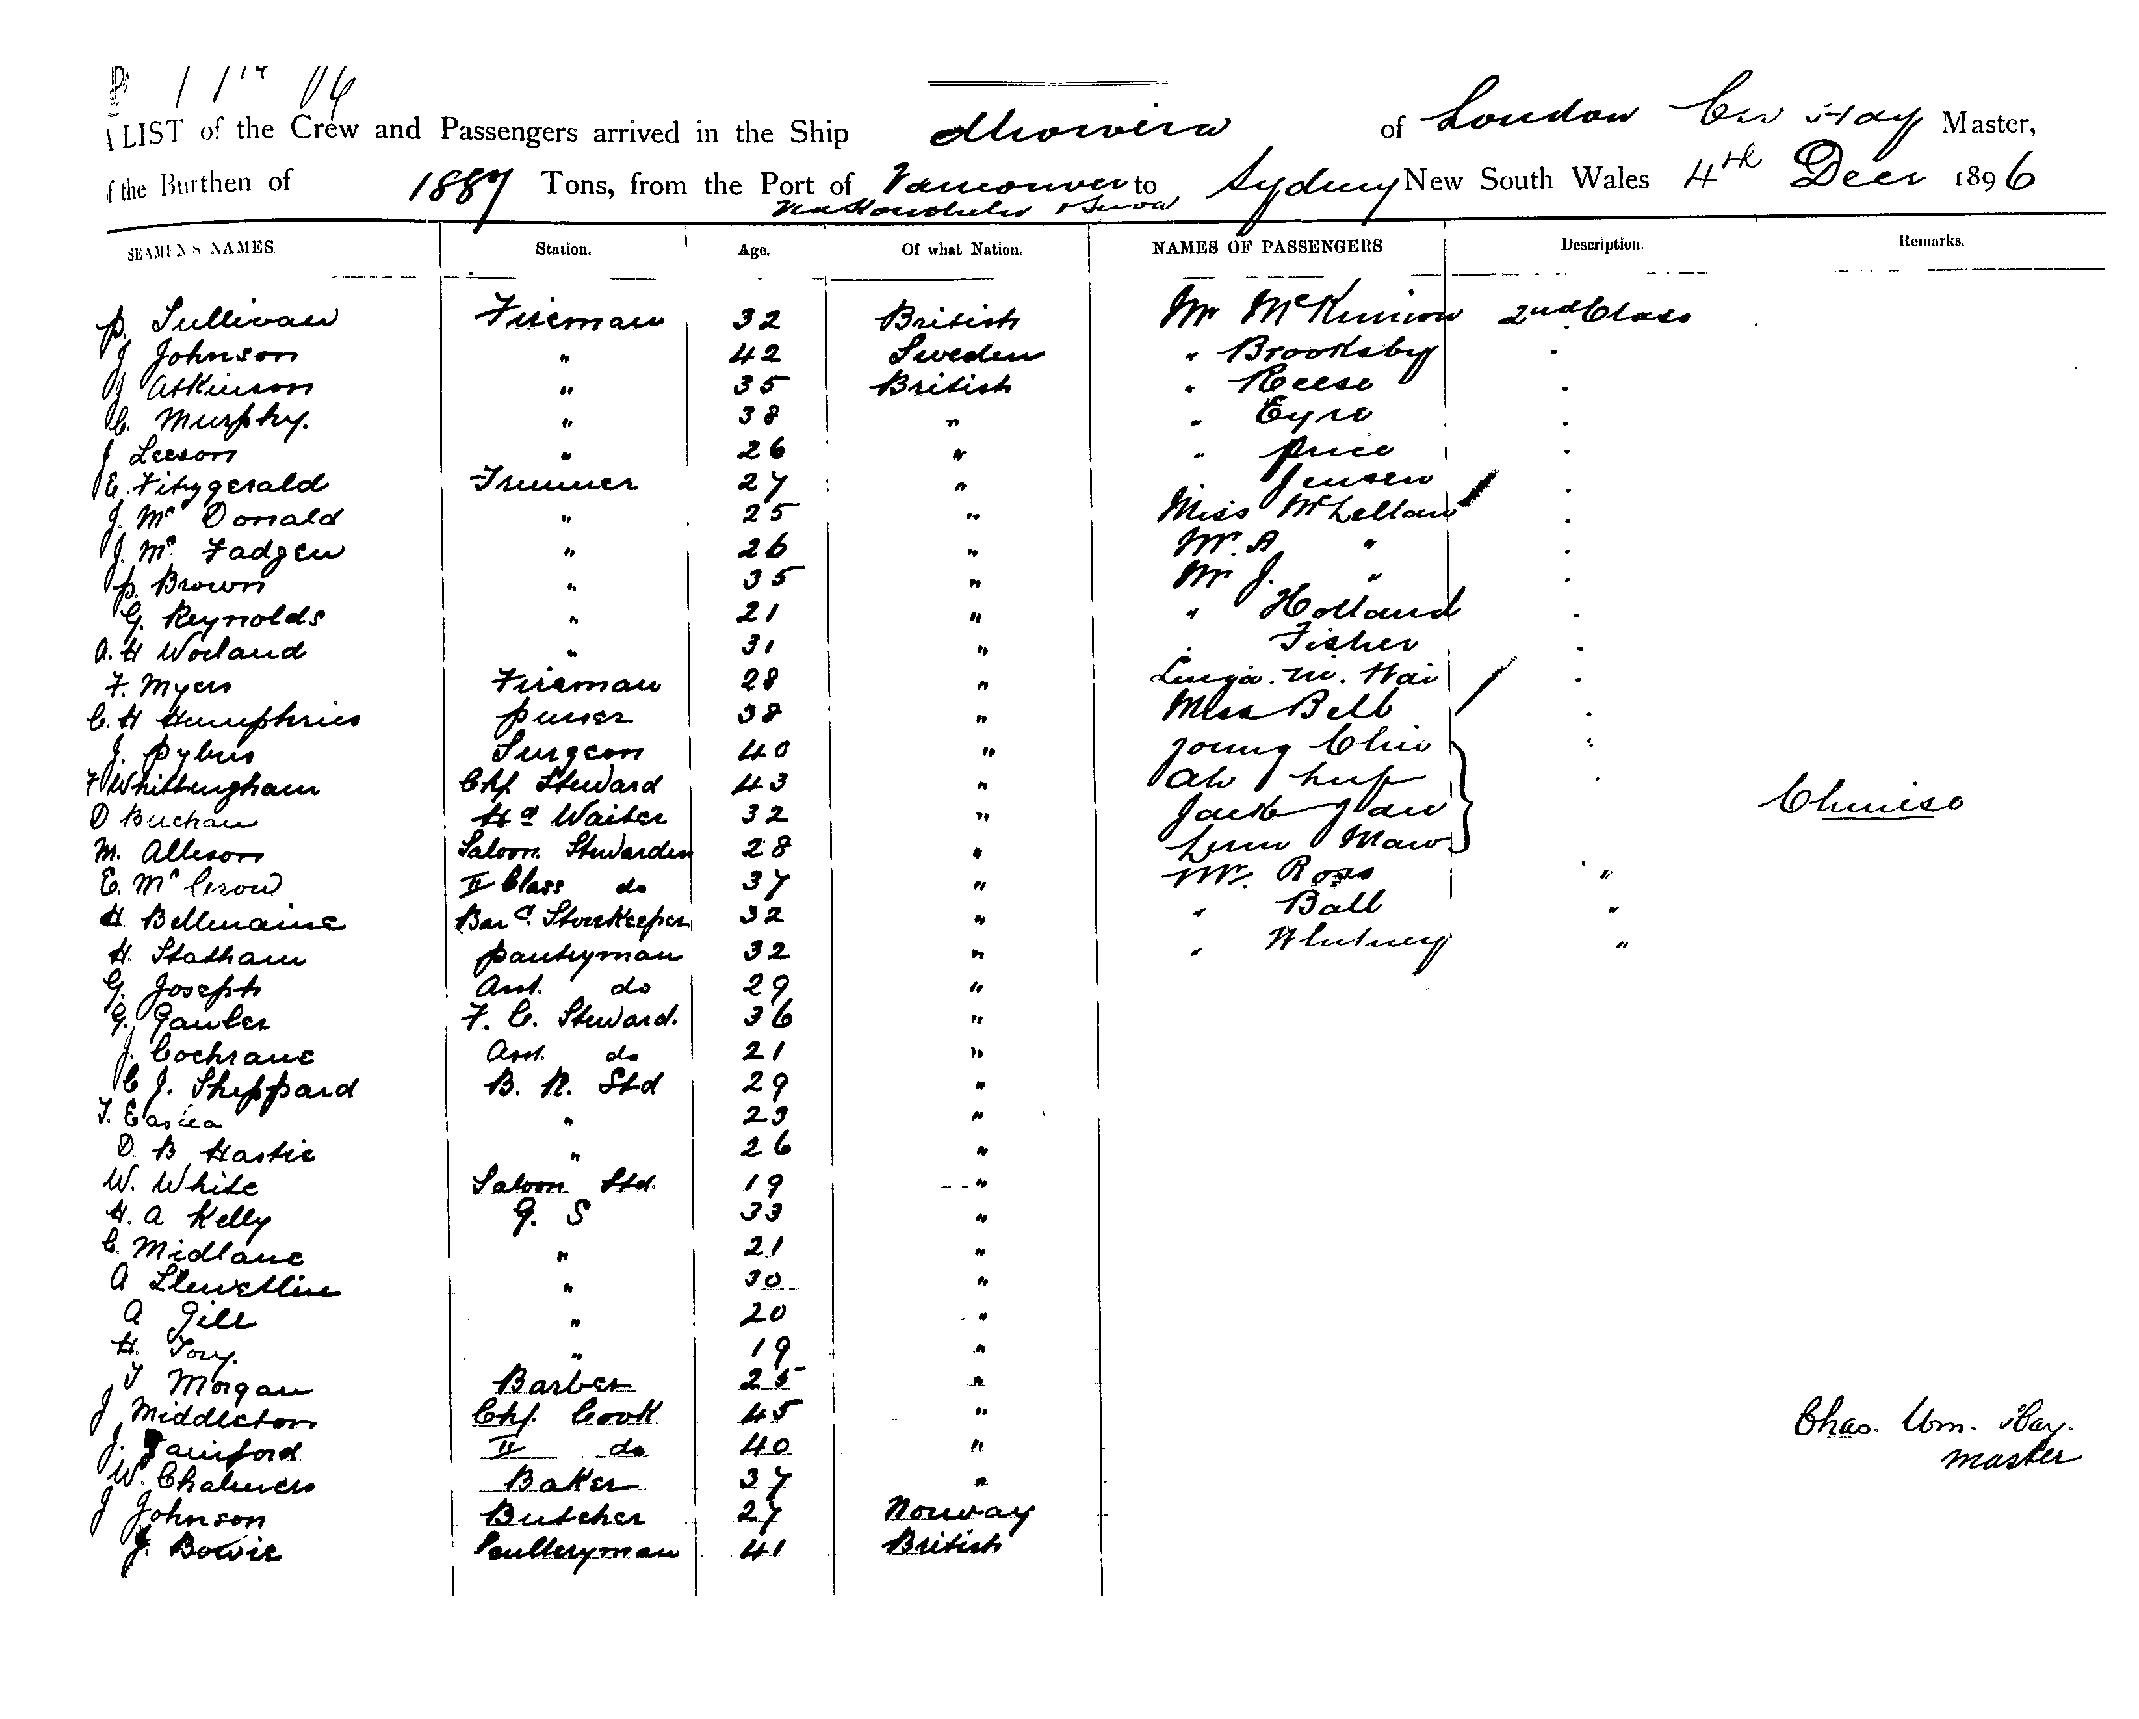 LIST of the Crew and Passengers arrived in the Ship Miowera of London C W Hay Master,
of the Burthen of 1887 Tons, from the Port of Vancouver to Sydney New South Wales 4th Decr 1896
via Honolulu & Suva
SEAMEN'S NAMES Station. Age. Of what Nation. NAMES OF PASSENGERS Description. Remarks.
P. Sullivan Fireman 32 British Mr McKinnon 2nd Class
J Johnson " 42 Sweden " Brooksby "
J Atkinson " 35 British " Reese "
C. Murphy. " 38 " " Eyre "
J Leeson " 26 " " Price "
E. Fitzgerald Trimmer 27 " " Jensen "
J. Mc Donald " 25 " Miss McLellan "
J. Mc Fadgen " 26 " Mr. A " "
P. Brown " 35 " Mr J. " "
G. Reynolds " 21 " " Holland "
A. H Worland " 31 " " Fisher "
F. Myers Fireman 28 " "
C. H Humphries Purser 38 " Miss Bell "
J. Pybus Surgeon 40 " Young "
F Whittingham Chf Steward 43 " Ah "
D Buchan Hd Waiter 32 " Jack Chinese
M. Allison Saloon Stewardess 28 "
E. Mc Crow II Class do 37 " Mr. Ross "
H Bellmaine Bar & Storekeeper 32 " " Ball "
H. Statham Pantryman 32 " " Whitney "
G. Joseph Asst. do 29 "
G. Gawler F. C. Steward. 36 "
J. Cochrane Asst. do 21 "
C J. Sheppard B. R. Std 29 "
T. " 23 "
D. B Hastie " 26 "
W. White Saloon Std. 19 "
H. A Kelly G. S 33 "
C. Midlane " 21 "
A Llewellin " 30 "
A Gill " 20 "
H. Tory. " 19 "
T Morgan Barber 25 "
J Middleton Chf. Cook 45 " Chas. Wm. Hay.
J. II do 40 " Master
W. Chalmers Baker 37 "
J Johnson Butcher 27 Norway
J. Bowie Sculleryman 41 British